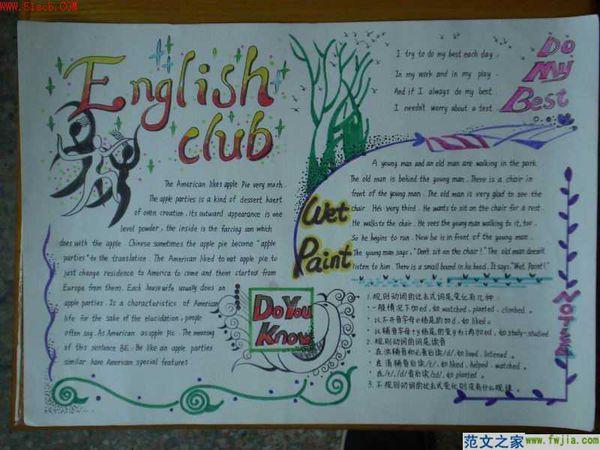 www.5iecb.COM
English
club
The American likes apple Pie very much.
The apple parties is a kind of dessert haert
of oven creation. Its outward appearance is one
level powder, the inside is the farcing son which
does with the apple. Chinese sometimes the apple pie become "apple
parties" to the translation. The American liked to eat apple pie to
just change residence to America to come and them started from
Europe from them. Each house wife usually does an
apple parties. Is a characteristics of American
life for the sake of the elucidation, people
often say. As American as apple pie. The meaning
of this sentence BE. Be like an apple parties
similar have American special features
Do You
Know
I try to do my best each day.
In my work and in my play.
And if I always do my best
I needn't worry about a test
Do
My
Best
Wet
Paint
A young man and an old man are walking in the park.
The old man is behind the young man. There is a chair in
front of the young man. The old man is very glad to see the
chair. He's very tired. He wants to sit on the chair for a rest.
He walks to the chair. He sees the young man walking to it, too.
So he begins to run. Now he is in front of the young man.
The young man says, "Don't sit on the chair!" The old man doesn't
listen to him. There is a small board in his head. It says "Wet Paint!"
1.规则动词的过去式词尾变化有几种
·一般情况下加ed,如watched, planted, climbed.
·以不发音字母e结尾的加d,如liked.
·以辅音字母+y结尾的变y为i再加ed,如study-studied
2.规则动词的词尾读音
3.不规则动词的过去式变化则没有什么规律。
范文之家
www.fwjia.com